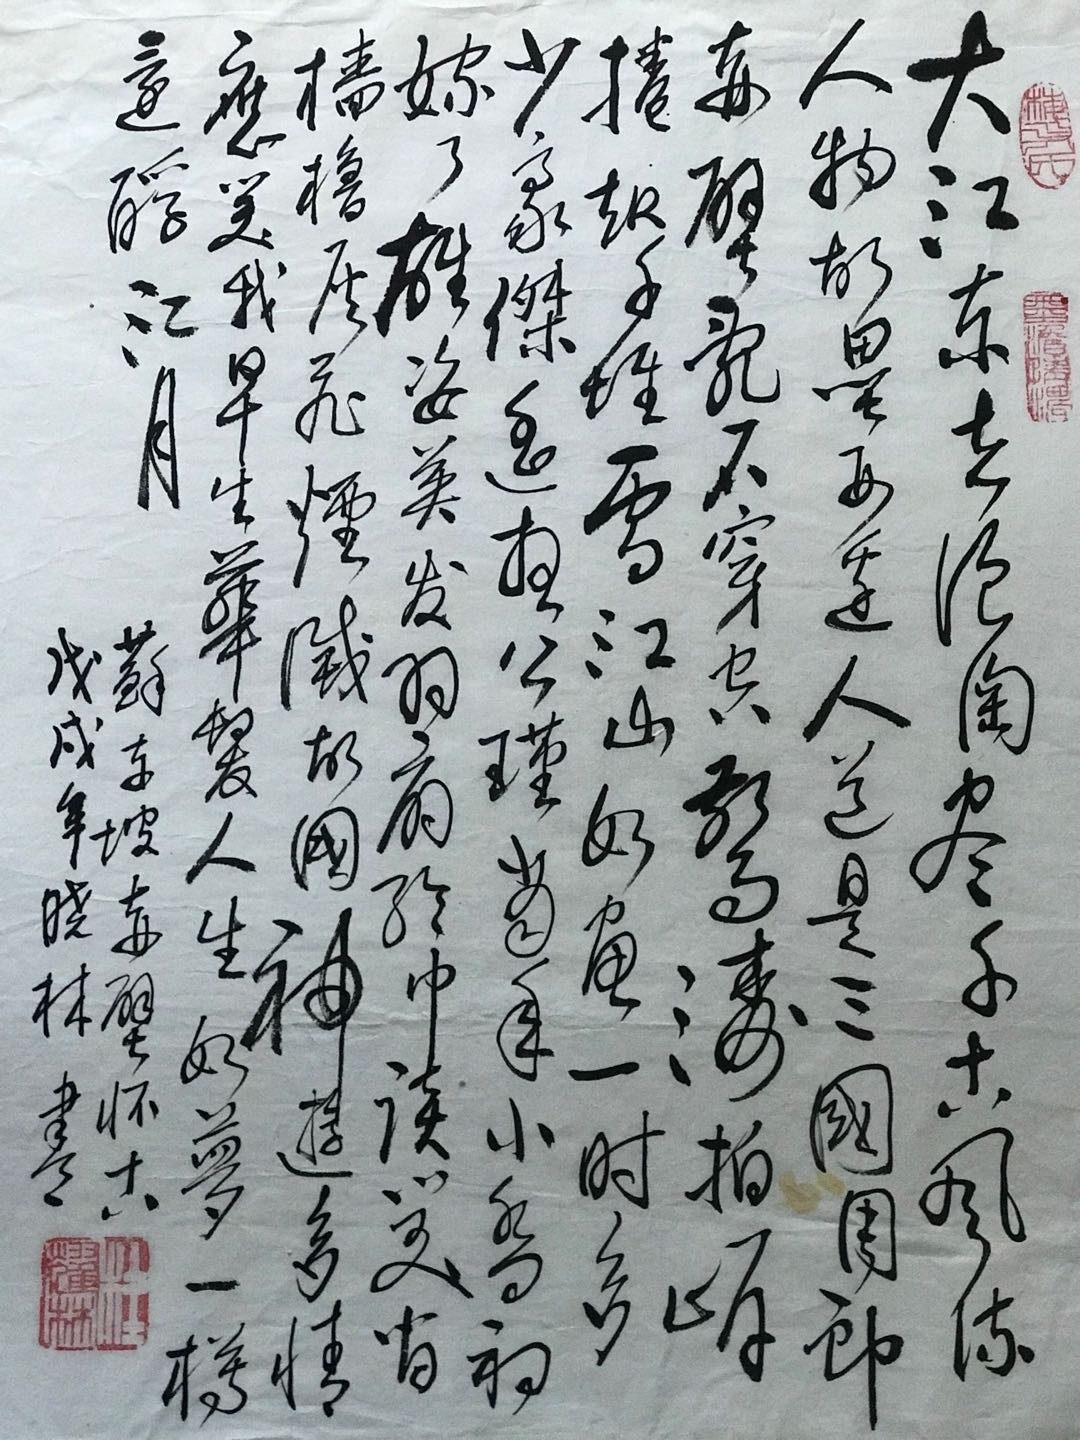 大江东去浪淘尽千古风流
人物故壘西边人道是三國周郎
赤壁亂石穿空驚涛拍岸
捲起千堆雪江山如畫一时多
少豪傑遥想公瑾當年小喬初
嫁了雄姿英发羽扇纶巾谈笑间
檣櫓灰飞煙滅故國神遊多情
應笑我早生華髮人生如夢一樽
還酹江月
蘇东坡赤壁怀古
戊戌年晓林書